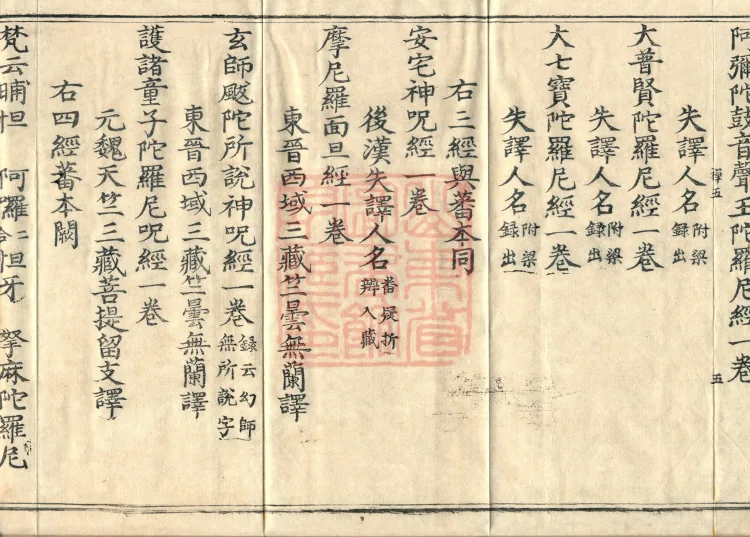 阿彌陀鼓音聲王陀羅尼經一卷
五
失譯人名附梁錄出
大普賢陀羅尼經一卷
失譯人名附梁錄出
大七寶陀羅尼經一卷
失譯人名附梁錄出
右三經與蕃本同
安宅神呪經一卷
後漢失譯人名蕃疑折辨入藏
摩尼羅面旦經一卷
東晉西域三藏竺曇無蘭譯
玄師颰陀所說神呪經一卷錄云幻師無所說字
東晉西域三藏竺曇無蘭譯
護諸童子陀羅尼呪經一卷
元魏天竺三藏菩提留支譯
右四經蕃本闕
梵云晡怛 阿羅二合怛牙 拏麻陀羅尼